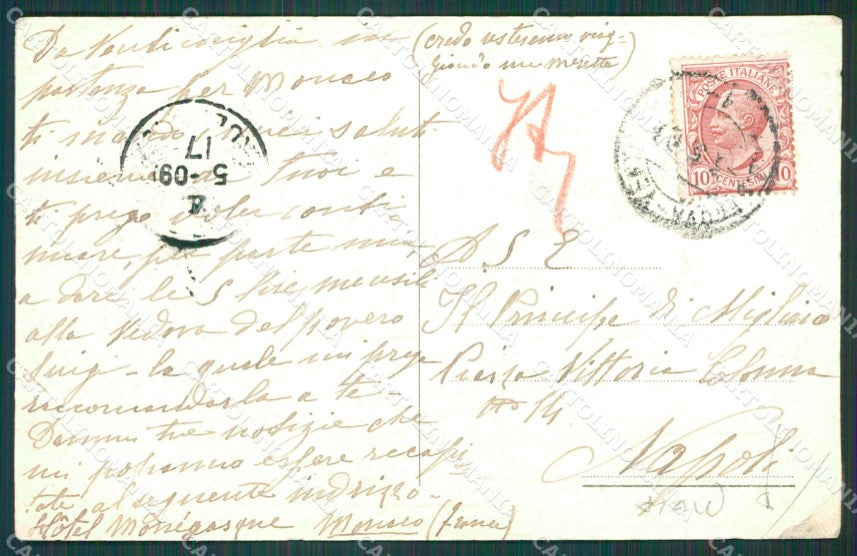 Da Ventimiglia in
(credo resteremo viag-
partenza per Monaco
giando un mesetto)
ti mando i miei saluti
insieme ai tuoi e
ti prego voler conti
nuare, per parte mia,
a dare le 5 lire mensili
alla vedova del povero
Luigi - la quale mi prega
raccomandarla a te -
Dammi tue notizie che
mi potranno essere recapi
tate al seguente indirizzo -
Hôtel Monégasque Monaco (France)
17
5-09
POSTE ITALIANE
10 CENTESIMI 10
A S E
Il Principe di Migliano
Piazza Vittoria Colonna
no 14
Napoli
CARTOLINOMANIA